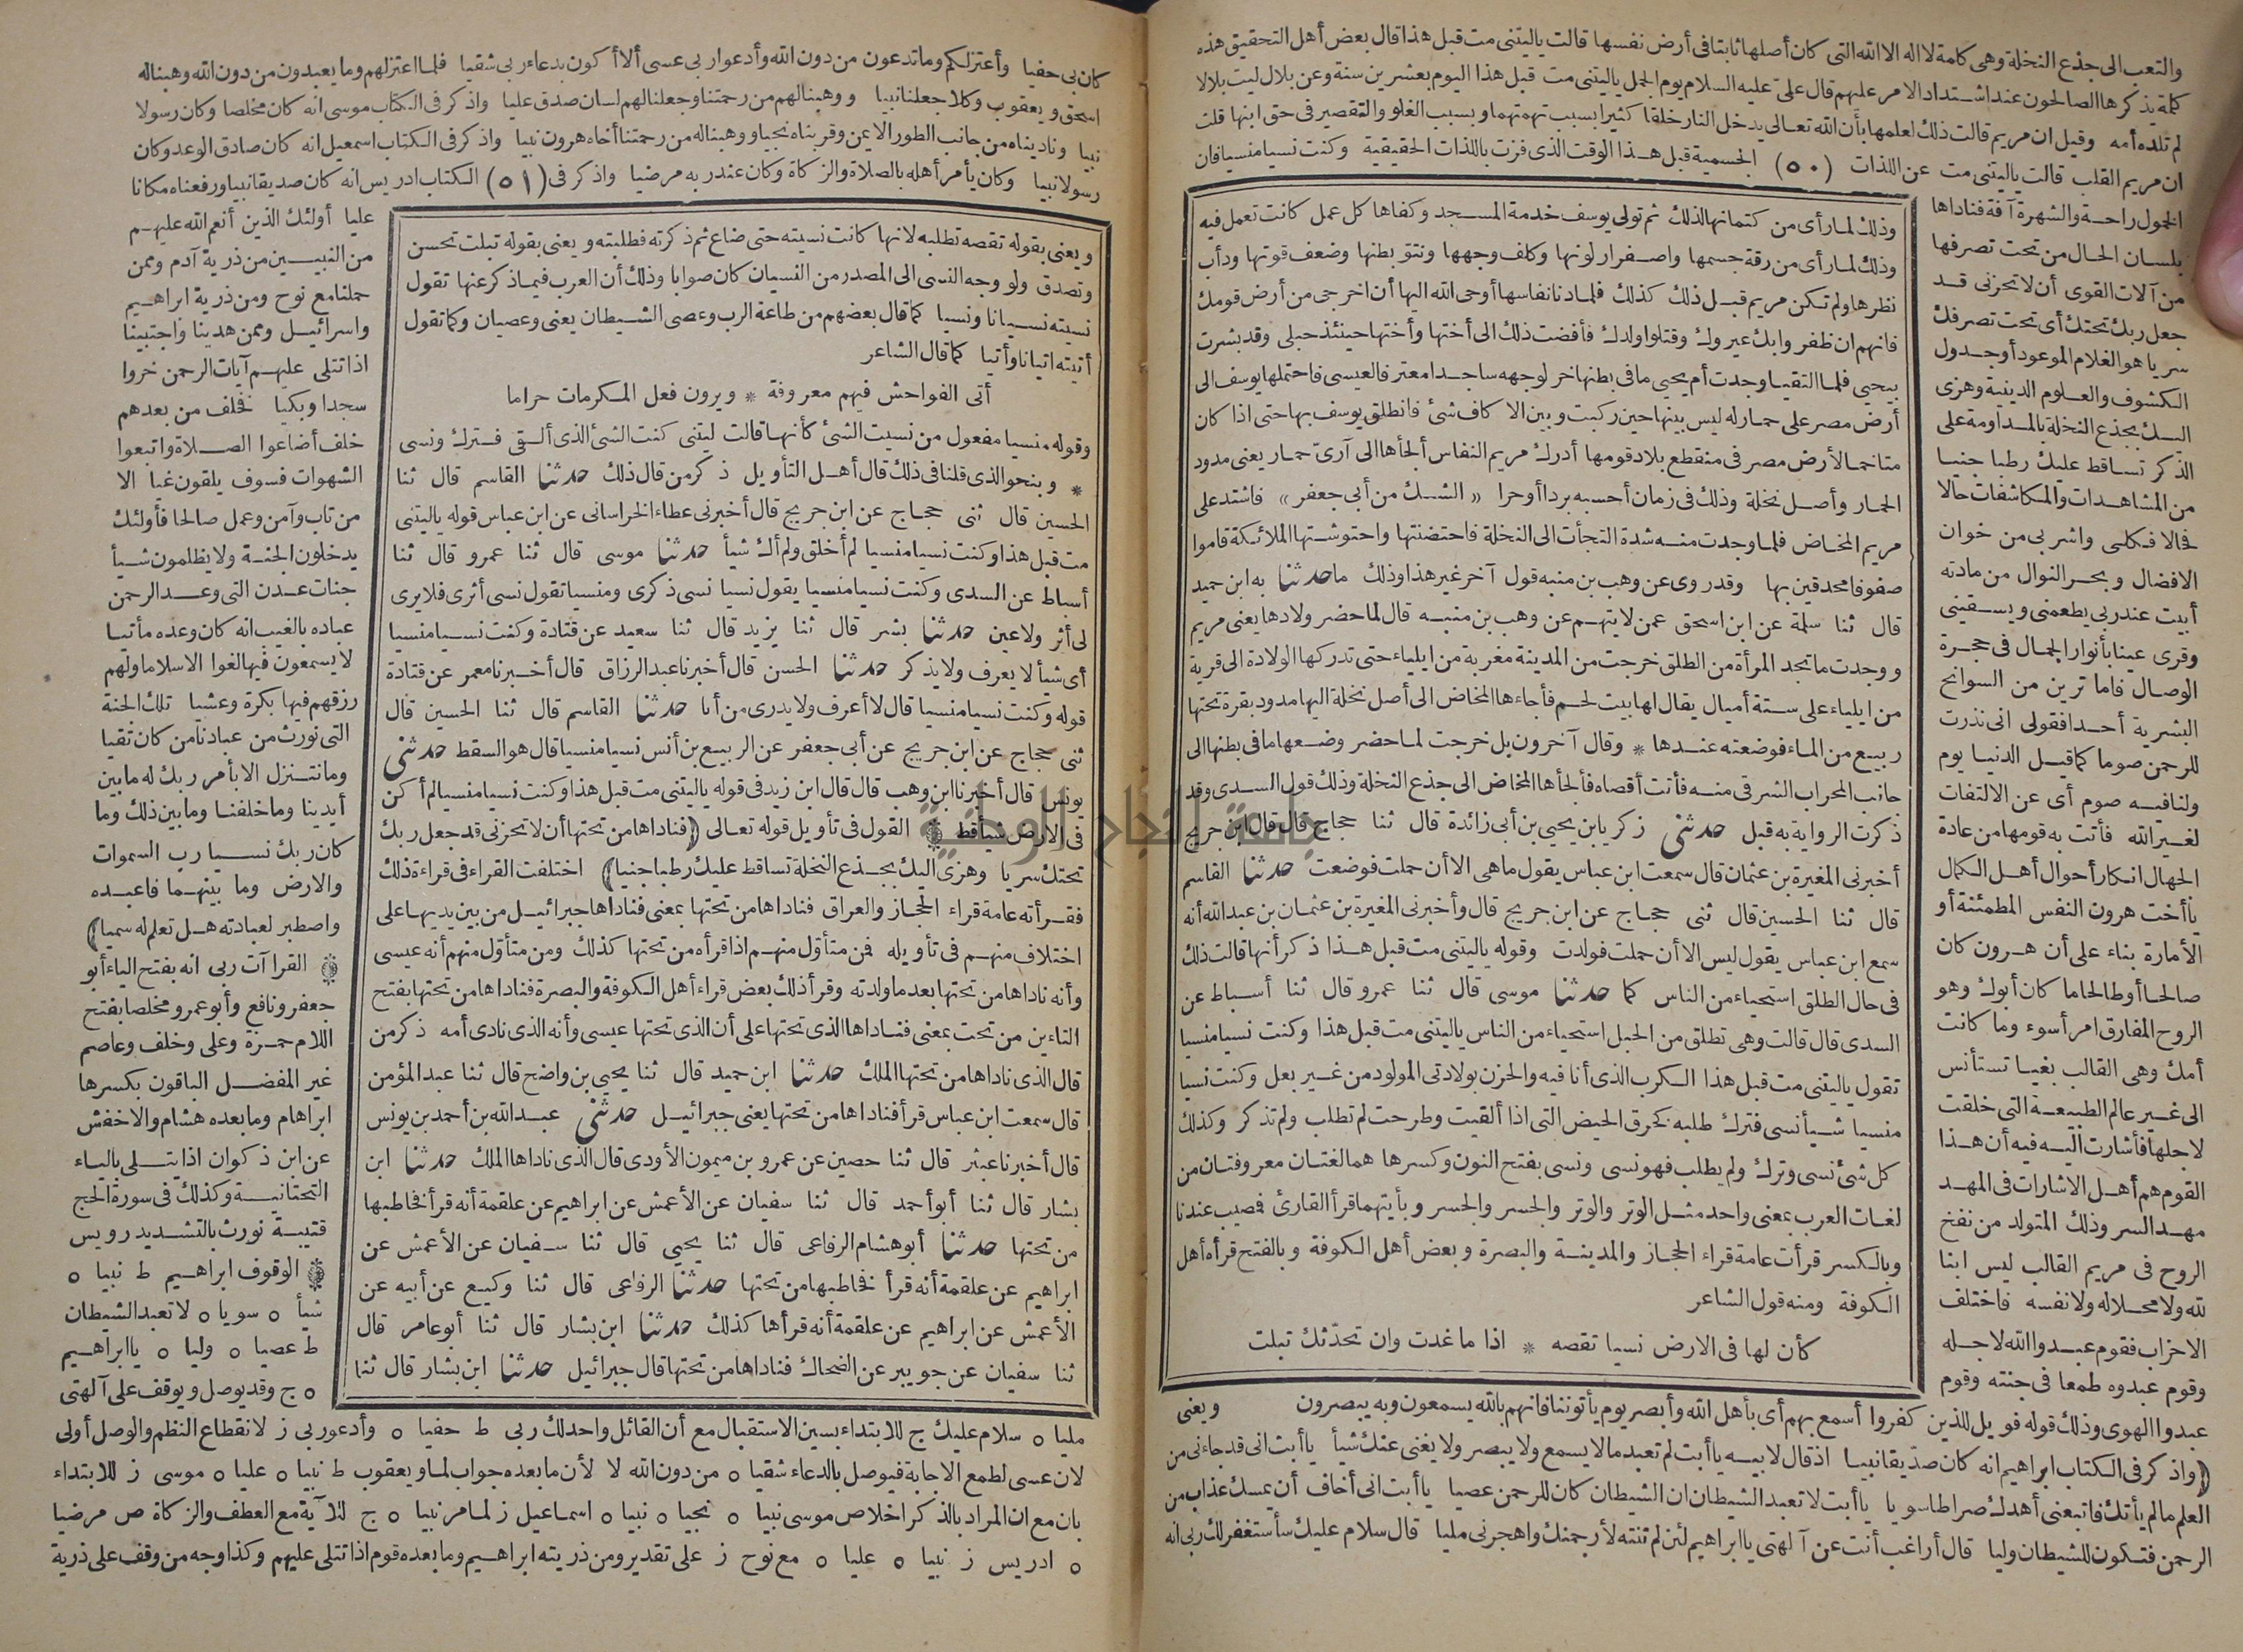 والتعب الى جذع النخلة وهى كلمة لا اله الا الله التى كان أصلها ثابتا فى أرض نفسها قالت ياليتنى مت قبل هذا قال بعض أهل التحقيق هذه
كلمة يذكرها الصالحون عند اشتداد الامر عليهم قال علىّ عليه السلام يوم الجمل ياليتنى مت قبل هذا اليوم بعشرين سنة وعن بلال ليت بلالا
لم تلده أمه وقيل ان مريم قالت ذلك لعلمها بأن الله تعالى يدخل النار خلقا كثيرا بسبب تهمتها وبسبب الغلو والتقصير فى حق ابنها قلت
ان مريم القلب قالت ياليتنى مت عن اللذات (٥٠) الجسمية قبل هذا الوقت الذى فزت باللذات الحقيقية وكنت نسيا منسيا فان
الخمول راحة والشهرة آفة فناداها
بلسان الحال من تحت تصرفها
من آلات القوى أن لا تحزنى قد
جعل ربك تحتك أى تحت تصرفك
سريا هو الغلام الموعود أو جدول
الكشوف والعلوم الدينية وهزى
اليك بجذع النخلة بالمداومة على
الذكر تساقط عليك رطبا جنيا
من المشاهدات والمكاشفات حالا
فحالا فكلى واشربى من خوان
الافضال وبحر النوال من مادته
أبيت عند ربى يطعمنى ويسقينى
وقرى عينا بأنوار الجمال فى حجرة
الوصال فاما ترين من السوانح
البشرية أحدا فقولى انى نذرت
للرحمن صوما كما قيل الدنيا يوم
ولنا فيه صوم أى عن الالتفات
لغير الله فأتت به قومها من عادة
الجهال انكار أحوال أهل الكمال
يا أخت هرون النفس المطمئنة أو
الأمارة بناء على أن هرون كان
صالحا أو طالحا ما كان أبوك وهو
الروح المفارق امرأ سوء وما كانت
أمك وهى القالب بغيا تستأنس
الى غير عالم الطبيعة التى خلقت
لاجلها فأشارت اليه فيه أن هذا
القوم هم أهل الاشارات فى المهد
مهد السر وذلك المتولد من نفخ
الروح فى مريم القالب ليس ابنا
لله ولا محلا له ولا نفسه فاختلف
الاحزاب فقوم عبدوا الله لاجله
وقوم عبدوه طمعا فى جنته وقوم
وذلك لما رأى من كتمانها لذلك ثم تولى يوسف خدمة المسجد وكفاها كل عمل كانت تعمل فيه
وذلك لما رأى من رقة جسمها واصفرار لونها وكلف وجهها ونتو بطنها وضعف قوتها ودأب
نظرها ولم تكن مريم قبل ذلك كذلك فلما دنا نفاسها أوحى الله اليها أن اخرجى من أرض قومك
فانهم ان ظفروا بك عيروك وقتلوا ولدك فأفضت ذلك الى أختها وأختها حينئذ حبلى وقد بشرت
بيحيى فلما التقيا وجدت أم يحيى ما فى بطنها خر لوجهه ساجدا معترفا لعيسى فاحتملها يوسف الى
أرض مصر على حمار له ليس بينها حين ركبت وبين الاكاف شئ فانطلق يوسف بها حتى اذا كان
متاخما لأرض مصر فى منقطع بلاد قومها أدرك مريم النفاس ألجأها الى آرىّ حمار يعنى مدود
الحمار وأصل نخلة وذلك فى زمان أحسبه بردا أو حرا «الشك من أبى جعفر» فاشتد على
مريم المخاض فلما وجدت منه شدة التجأت الى النخلة فاحتضنتها واحتوشتها الملائكة قاموا
صفوفا محدقين بها وقد روى عن وهب بن منبه قول آخر غير هذا وذلك ما حدثنا به ابن حميد
قال ثنا سلمة عن ابن اسحق عمن لا يتهم عن وهب بن منبه قال لما حضر ولادها يعنى مريم
ووجدت ما تجد المرأة من الطلق خرجت من المدينة مغربة من ايلياء حتى تدركها الولادة الى قرية
من ايلياء على ستة أميال يقال لها بيت لحم فأجاءها المخاض الى أصل نخلة اليها مدود بقرة تحتها
ربيع من الماء فوضعته عندها * وقال آخرون بل خرجت لما حضر وضعها ما فى بطنها الى
جانب المحراب الشرقى منه فأتت أقصاه فألجأها المخاض الى جذع النخلة وذلك قول السدى وقد
ذكرت الرواية به قبل حدثنى زكريا بن يحيى بن أبى زائدة قال ثنا حجاج قال قال ابن جريج
أخبرنى المغيرة بن عثمان قال سمعت ابن عباس يقول ما هى الا أن حملت فوضعت حدثنا القاسم
قال ثنا الحسين قال ثنى حجاج عن ابن جريج قال وأخبرنى المغيرة بن عثمان بن عبد الله أنه
سمع ابن عباس يقول ليس الا أن حملت فولدت وقوله ياليتنى مت قبل هذا ذكر أنها قالت ذلك
فى حال الطلق استحياء من الناس كما حدثنا موسى قال ثنا عمرو قال ثنا أسباط عن
السدى قال قالت وهى تطلق من الحبل استحياء من الناس ياليتنى مت قبل هذا وكنت نسيا منسيا
تقول ياليتنى مت قبل هذا الكرب الذى أنا فيه والحزن بولادتى المولود من غير بعل وكنت نسيا
منسيا شيأ نسى فترك طلبه كخرق الحيض التى اذا ألقيت وطرحت لم تطلب ولم تذكر وكذلك
كل شئ نسى وترك ولم يطلب فهو نسى ونسى بفتح النون وكسرها هما لغتان معروفتان من
لغات العرب بمعنى واحد مثل الوتر والوتر والجسر والجسر وبأيتهما قرأ القارئ فمصيب عندنا
وبالكسر قرأت عامة قراء الحجاز والمدينة والبصرة وبعض أهل الكوفة وبالفتح قرأه أهل
الكوفة ومنه قول الشاعر
كأن لها فى الارض نسيا تقصه * اذا ما غدت وان تحدّثك تبلت
عبدوا الهوى وذلك قوله فويل للذين كفروا أسمع بهم أى بأهل الله وأبصر يوم يأتوننا فانهم بالله يسمعون وبه يبصرون ويعنى
(واذكر فى الكتاب ابراهيم انه كان صدّيقا نبيا اذ قال لابيه يا أبت لم تعبد ما لا يسمع ولا يبصر ولا يغنى عنك شيأ يا أبت انى قد جاءنى من
العلم ما لم يأتك فاتبعنى أهدك صراطا سويا يا أبت لا تعبد الشيطان ان الشيطان كان للرحمن عصيا يا أبت انى أخاف أن يمسك عذاب من
الرحمن فتكون للشيطان وليا قال أراغب أنت عن آلهتى يا ابراهيم لئن لم تنته لأرجمنك واهجرنى مليا قال سلام عليك سأستغفر لك ربى انه
كان بى حفيا وأعتزلكم وما تدعون من دون الله وأدعوا ربى عسى ألا أكون بدعاء ربى شقيا فلما اعتزلهم وما يعبدون من دون الله وهبنا له
اسحق ويعقوب وكلا جعلنا نبيا ووهبنا لهم من رحمتنا وجعلنا لهم لسان صدق عليا واذكر فى الكتاب موسى انه كان مخلصا وكان رسولا
نبيا وناديناه من جانب الطور الايمن وقربناه نجيا ووهبنا له من رحمتنا أخاه هرون نبيا واذكر فى الكتاب اسمعيل انه كان صادق الوعد وكان
رسولا نبيا وكان يأمر أهله بالصلاة والزكاة وكان عند ربه مرضيا واذكر فى (٥١) الكتاب ادريس انه كان صديقا نبيا ورفعناه مكانا
ويعنى بقوله تقصه تطلبه لانها كانت نسيته حتى ضاع ثم ذكرته فطلبته ويعنى بقوله تبلت تحسن
وتصدق ولو وجه النسى الى المصدر من النسيان كان صوابا وذلك أن العرب فيما ذكر عنها تقول
نسيته نسيانا ونسيا كما قال بعضهم من طاعة الرب وعصى الشيطان يعنى وعصيان وكما تقول
أتيته اتيانا وأتيا كما قال الشاعر
أتى الفواحش فيهم معروفة * ويرون فعل المكرمات حراما
وقوله منسيا مفعول من نسيت الشئ كأنها قالت ليتنى كنت الشئ الذى ألقى فترك ونسى
* وبنحو الذى قلنا فى ذلك قال أهل التأويل ذكر من قال ذلك حدثنا القاسم قال ثنا
الحسين قال ثنى حجاج عن ابن جريج قال أخبرنى عطاء الخراسانى عن ابن عباس قوله ياليتنى
مت قبل هذا وكنت نسيا منسيا لم أخلق ولم أك شيأ حدثنا موسى قال ثنا عمرو قال ثنا
أسباط عن السدى وكنت نسيا منسيا يقول نسيا نسى ذكرى ومنسيا تقول نسى أثرى فلا يرى
لى أثر ولا عين حدثنا بشر قال ثنا يزيد قال ثنا سعيد عن قتادة وكنت نسيا منسيا
أى شيأ لا يعرف ولا يذكر حدثنا الحسن قال أخبرنا عبد الرزاق قال أخبرنا معمر عن قتادة
قوله وكنت نسيا منسيا قال لا أعرف ولا يدرى من أنا حدثنا القاسم قال ثنا الحسين قال
ثنى حجاج عن ابن جريج عن أبى جعفر عن الربيع بن أنس نسيا منسيا قال هو السقط حدثنى
يونس قال أخبرنا ابن وهب قال قال ابن زيد فى قوله ياليتنى مت قبل هذا وكنت نسيا منسيا لم أكن
فى الارض شيأ قط القول فى تأويل قوله تعالى (فناداها من تحتها أن لا تحزنى قد جعل ربك
تحتك سريا وهزى اليك بجذع النخلة تساقط عليك رطبا جنيا) اختلفت القراء فى قراءة ذلك
فقرأته عامة قراء الحجاز والعراق فناداها من تحتها بمعنى فناداها جبرائيل من بين يديها على
اختلاف منهم فى تأويله فمن متأوّل منهم اذا قرأه من تحتها كذلك ومن متأوّل منهم أنه عيسى
وأنه ناداها من تحتها بعد ما ولدته وقرأ ذلك بعض قراء أهل الكوفة والبصرة فناداها من تحتها بفتح
التاءين من تحت بمعنى فناداها الذى تحتها على أن الذى تحتها عيسى وأنه الذى نادى أمه ذكر من
قال الذى ناداها من تحتها الملك حدثنا ابن حميد قال ثنا يحيى بن واضح قال ثنا عبد المؤمن
قال سمعت ابن عباس قرأ فناداها من تحتها يعنى جبرائيل حدثنى عبد الله بن أحمد بن يونس
قال أخبرنا عبثر قال ثنا حصين عن عمرو بن ميمون الأودى قال الذى ناداها الملك حدثنا ابن
بشار قال ثنا أبو أحمد قال ثنا سفيان عن الأعمش عن ابراهيم عن علقمة أنه قرأ فخاطبها
من تحتها حدثنا أبو هشام الرفاعى قال ثنا يحيى قال ثنا سفيان عن الأعمش عن
ابراهيم عن علقمة أنه قرأ فخاطبها من تحتها حدثنا الرفاعى قال ثنا وكيع عن أبيه عن
الأعمش عن ابراهيم عن علقمة أنه قرأها كذلك حدثنا ابن بشار قال ثنا أبو عامر قال
ثنا سفيان عن جويبر عن الضحاك فناداها من تحتها قال جبرائيل حدثنا ابن بشار قال ثنا
عليا أولئك الذين أنعم الله عليهم
من النبيين من ذرية آدم وممن
حملنا مع نوح ومن ذرية ابراهيم
واسرائيل وممن هدينا واجتبينا
اذا تتلى عليهم آيات الرحمن خروا
سجدا وبكيا فخلف من بعدهم
خلف أضاعوا الصلاة واتبعوا
الشهوات فسوف يلقون غيا الا
من تاب وآمن وعمل صالحا فأولئك
يدخلون الجنة ولا يظلمون شيأ
جنات عدن التى وعد الرحمن
عباده بالغيب انه كان وعده مأتيا
لا يسمعون فيها لغوا الا سلاما ولهم
رزقهم فيها بكرة وعشيا تلك الجنة
التى نورث من عبادنا من كان تقيا
وما نتنزل الا بأمر ربك له ما بين
أيدينا وما خلفنا وما بين ذلك وما
كان ربك نسيا رب السموات
والارض وما بينهما فاعبده
واصطبر لعبادته هل تعلم له سميا)
القراآت ربى انه بفتح الياء أبو
جعفر ونافع وأبو عمرو مخلصا بفتح
اللام حمزة وعلى وخلف وعاصم
غير المفضل الباقون بكسرها
ابراهام وما بعده هشام والاخفش
عن ابن ذكوان اذا يتلى بالياء
التحتانية وكذلك فى سورة الحج
قتيبة نورث بالتشديد رويس
الوقوف ابراهيم ط نبيا ه
شيأ ه سويا ه لا تعبد الشيطان
ط عصيا ه وليا ه يا ابراهيم
ه ج وقد يوصل ويوقف على آلهتى
مليا ه سلام عليك ج للابتداء بسين الاستقبال مع أن القائل واحد لك ربى ط حفيا ه وأدعو ربى ز لانقطاع النظم والوصل أولى
لان عسى لطمع الاجابة فيوصل بالدعاء شقيا ه من دون الله لا لأن ما بعده جواب لما ويعقوب ط نبيا ه عليا ه موسى ز للابتداء
بان مع ان المراد بالذكر اخلاص موسى نبيا ه نجيا ه نبيا ه اسماعيل ز لما مر نبيا ه ج للآية مع العطف والزكاة ص مرضيا
ه ادريس ز نبيا ه عليا ه مع نوح ز على تقدير ومن ذريته ابراهيم وما بعده قوم اذا تتلى عليهم وكذا وجه من وقف على ذرية
جامعة النجاح الوطنية